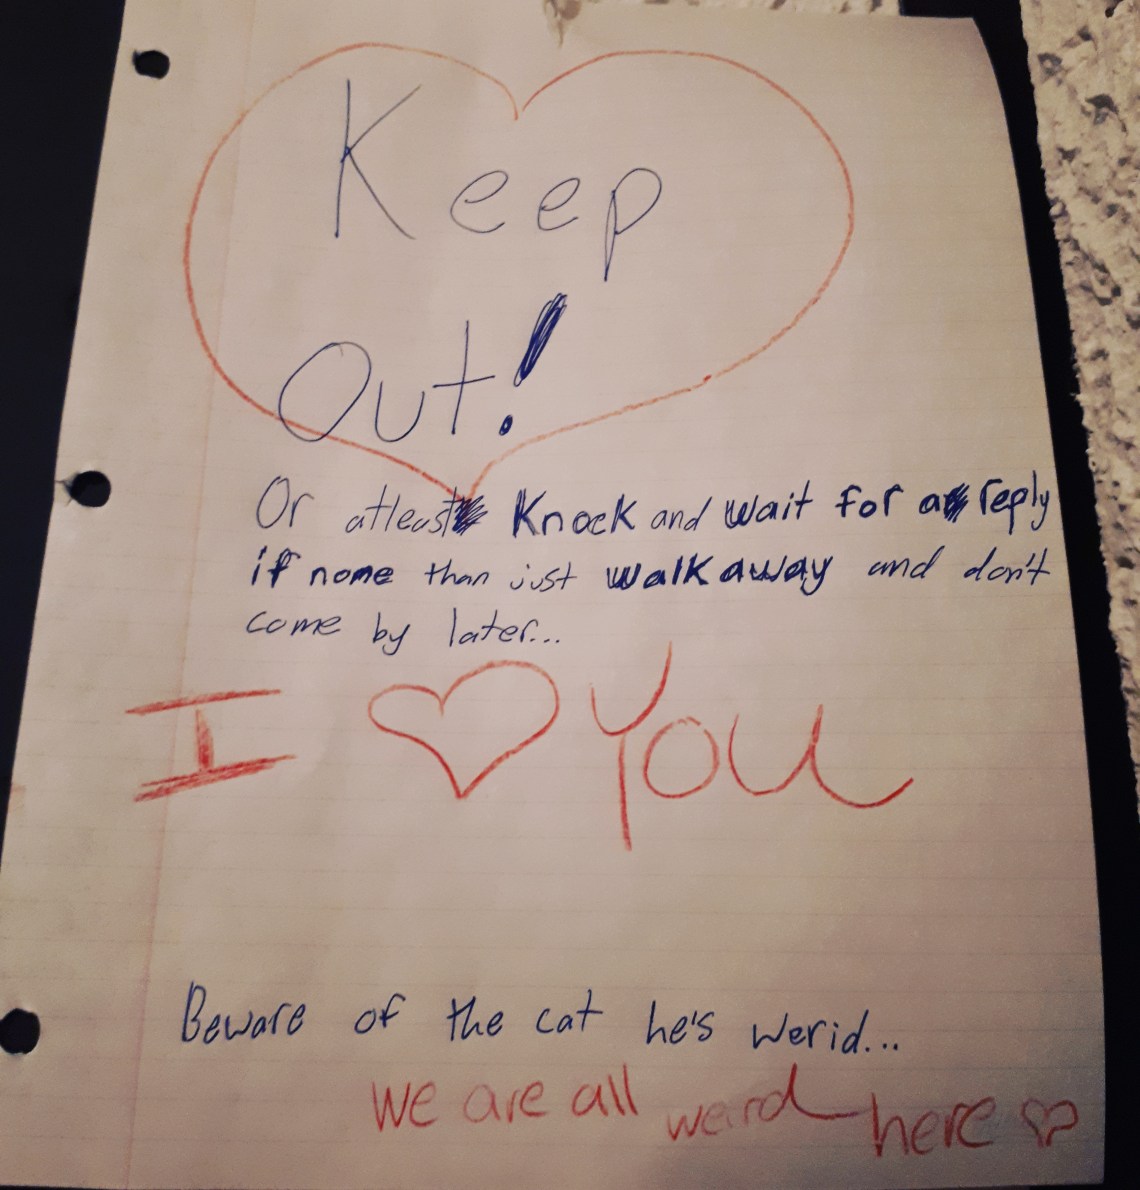 Keep
Out!
Or atleast Knock and wait for a reply
if none than just walk away and don't
come by later...
I ♡ You
Beware of the cat he's werid...
we are all weird here ♡